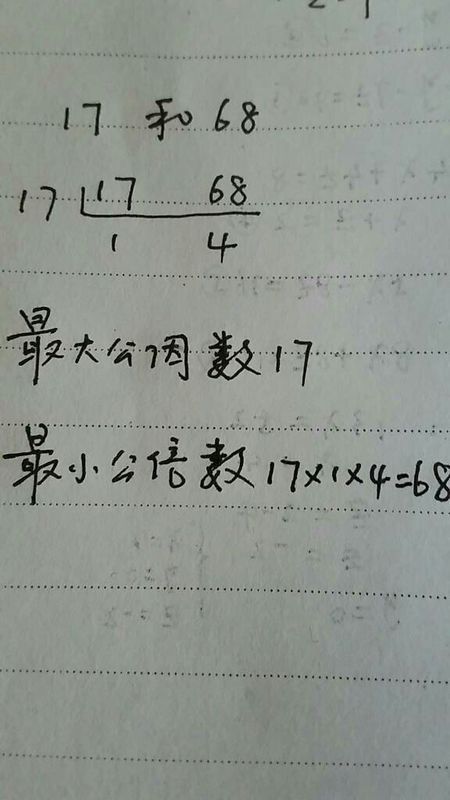 17 和 68
17 17 68
1 4
最大公因数17
最小公倍数17×1×4=68